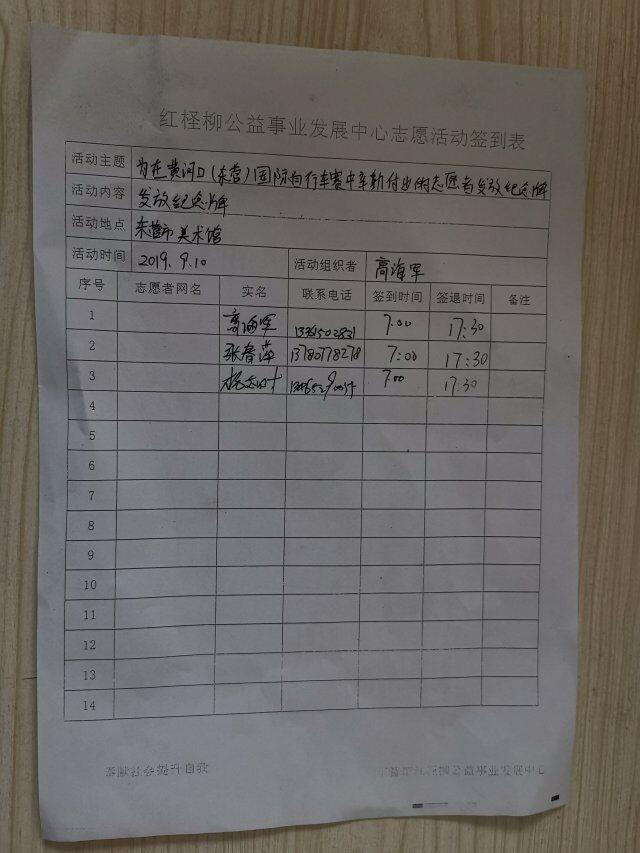 红柽柳公益事业发展中心志愿活动签到表
活动主题 为在黄河口(东营)国际自行车赛中辛勤付出的志愿者发放纪念牌
活动内容 发放纪念牌
活动地点 东营市美术馆
活动时间 2019.9.10 活动组织者 高海军
序号 志愿者网名 实名 联系电话 签到时间 签退时间 备注
1 高海军 7:00 17:30
2 张春萍 13780778278 7:00 17:30
3 7:00 17:30
4
5
6
7
8
9
10
11
12
13
14